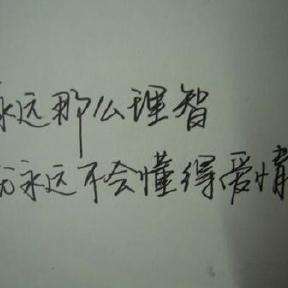 永远那么理智
永远不会懂得爱情